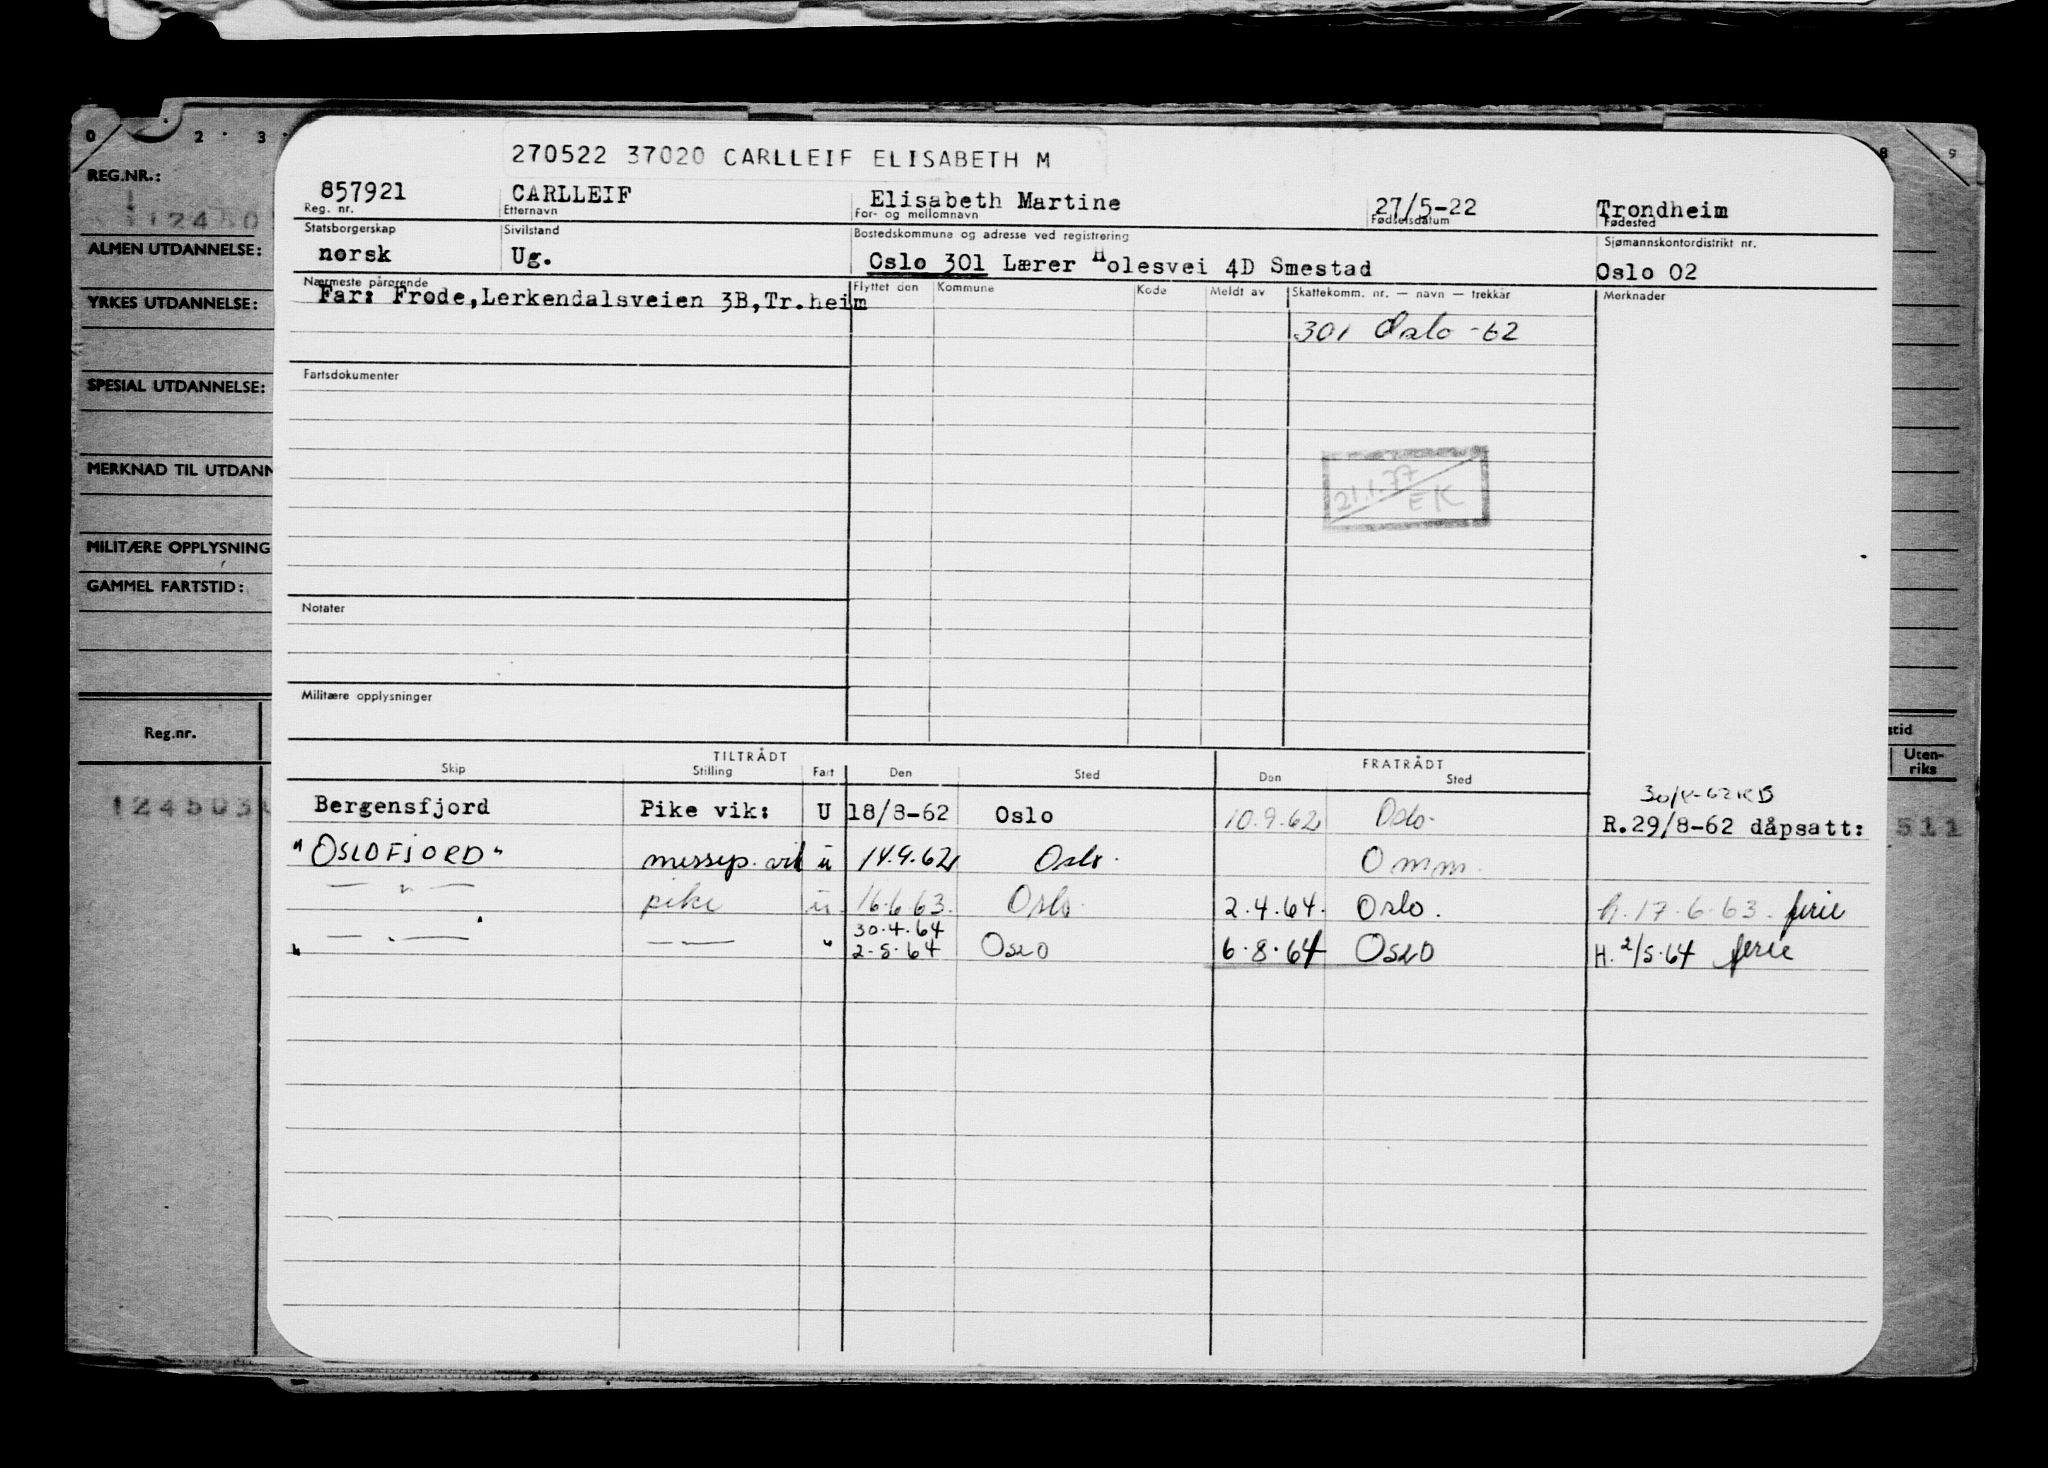 0 2 3 8 9
REG.NR.:
ALMEN UTDANNELSE:
YRKES UTDANNELSE:
SPESIAL UTDANNELSE:
MERKNAD TIL UTDANN
MILITÆRE OPPLYSNING
GAMMEL FARTSTID:
Reg.nr.
124503
270522 37020 CARLLEIF ELISABETH M
857921 CARLLEIF Elisabeth Martine 27/5-22 Trondheim
Reg. nr. Etternavn For- og mellomnavn Fødselsdatum Fødested
Statsborgerskap Sivilstand Bostedskommune og adresse ved registrering Sjømannskontordistrikt nr.
norsk Ug. Oslo 301 Lærer Holesvei 4D Smestad Oslo 02
Nærmeste pårørende Flyttet den Kommune Kode Meldt av Skattekomm. nr. — navn — trekkår Merknader
Far: Frode,Lerkendalsveien 3B,Tr.heim
301 Oslo -62
Fartsdokumenter
21.1.77
EK
Notater
Militære opplysninger
TILTRÅDT FRATRÅDT
Skip Stilling Fart Den Sted Den Sted
Bergensfjord Pike vik: U 18/8-62 Oslo 10.9.62 Oslo R.29/8-62 dåpsatt:
"OSLOFJORD" messep. vik u 14.9.62 Oslo. Omm.
— " — pike u 16.6.63. Oslo. 2.4.64. Oslo. h.17.6.63. ferie
30.4.64
— " — — " — " 2-5-64 OSLO 6.8.64 OSLO H. 2/5.64 ferie
stid
Uten-
riks
511